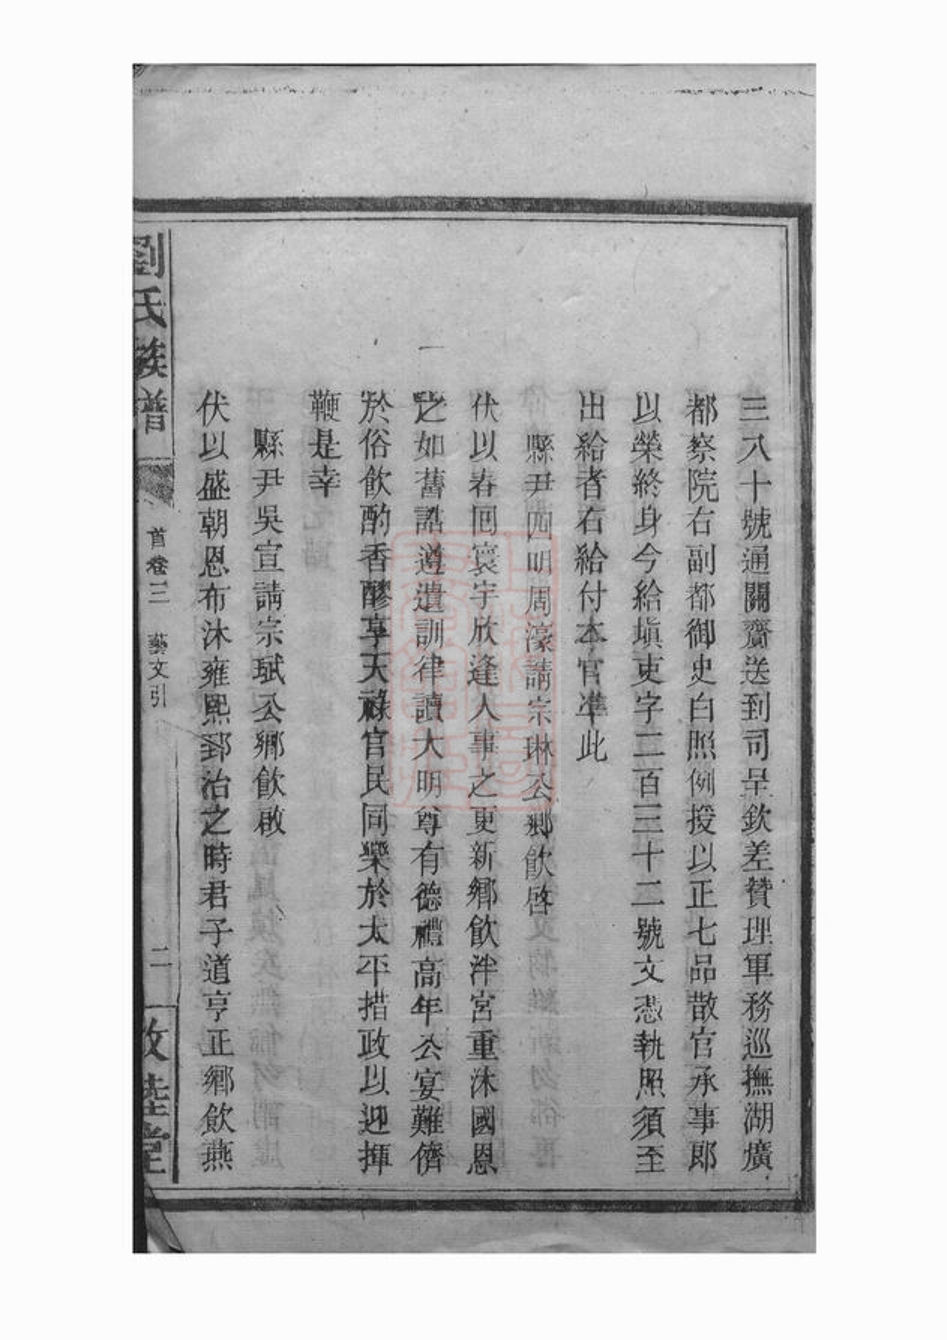 三八十號通關齎送到司呈欽差贊理軍務巡撫湖廣
都察院右副都御史白照例授以正七品散官承事郎
以榮終身今給塡吏字二百三十二號文憑執照須至
出給者右給付本官准此
縣尹四明周濠請宗琳公鄉飲啓
伏以春囘寰宇欣逢人事之更新鄉飲泮宮重沐國恩
之如舊誥遵遺訓律讀大明尊有德禮高年公宴難儕
於俗飲酌香醪享天祿官民同樂於太平措政以迎揮
鞭是幸
縣尹吳宣請宗賦公鄉飲啟
伏以盛朝恩布沐雍熙郅治之時君子道亨正鄉飲燕
劉氏族譜
首卷三 藝文引
二
敦睦堂